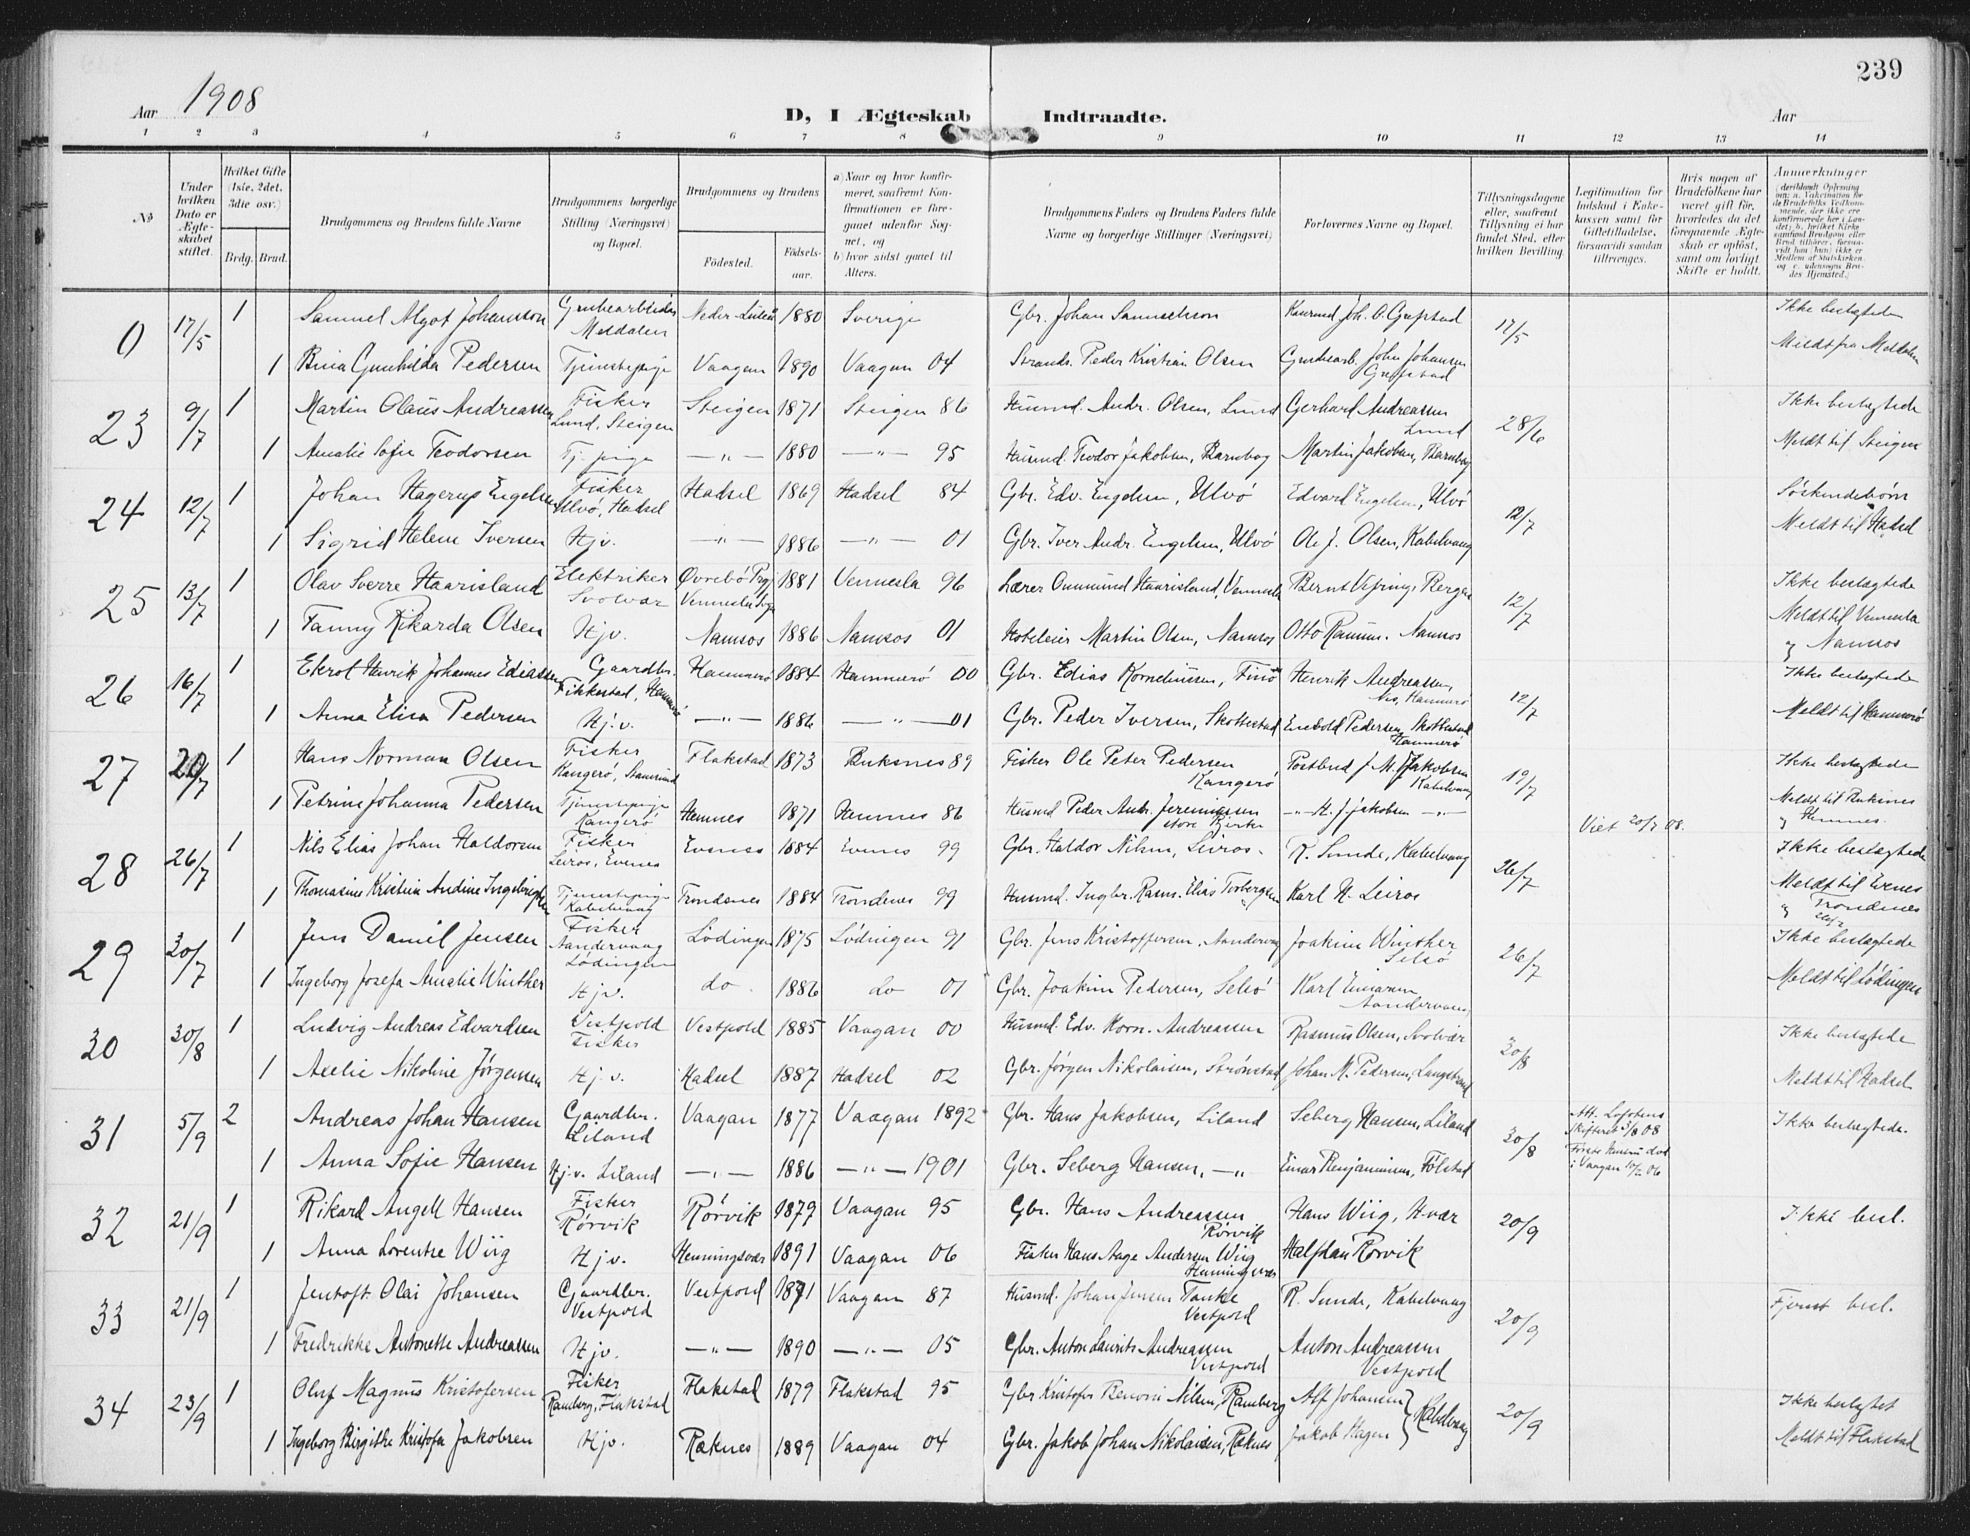 239
Aar 1908
D, I Ægteskab Indtraadte.
Aar
1 2 3 4 5 6 7 8 9 10 11 12 13 14
No
Under hvilken Dato er Ægteskabet stiftet.
Hvilket Gifte (1ste, 2det, 3die osv.)
Brdg. Brud.
Brudgommens og Brudens fulde Navne
Brudgommens borgerlige Stilling (Næringsvei) og Bopæl.
Brudgommens og Brudens
Fødested.
Fødselsaar.
a) Naar og hvor konfirmeret, saafremt Konfirmationen er foregaaet udenfor Sognet, og
b) hvor sidst gaaet til Alters.
Brudgommens Faders og Brudens Faders fulde Navne og borgerlige Stillinger (Næringsvei)
Forlovernes Navne og Bopæl.
Tillysningsdagene eller, saafremt Tillysning ei har fundet Sted, efter hvilken Bevilling.
Legitimation for Indskud i Enkekassen samt for Giftetilladelse, forsaavidt saadan tiltrænges.
Hvis nogen af Brudefolkene har været gift før, hvorledes da det foregaaende Ægteskab er opløst, samt om lovligt Skifte er holdt.
Anmerkninger
0 17/5 1 Samuel Algot Johansson Grubearbeider Meldalen Neder-Luleå 1880 Sverige Gbr. Johan Samuelsson Konrad Joh. O. Grefstad 17/5 Ikke beslægtede
1 Bina Gunhilda Pedersen Tjenestepige Vaagan 1890 Vaagan 04 Strands. Peder Kristian Olsen Grubearb. John Johansen Grefstad Meldt fra Meldalen
23 9/7 1 Martin Olaus Andreassen Fisker Lund, Steigen Steigen 1871 Steigen 86 Husmd. Andr. Olsen, Lund Gerhard Andreassen Lund 28/6 Ikke beslægtede
1 Amalie Sofie Teodorsen Tj. pige — " — 1880 — " — 95 Husmd. Teodor Jakobsen, Barnbog Martin Jakobsen, Barnbog Meldt til Steigen
24 12/7 1 Johan Hagerup Engelsen Fisker Ulvø, Hadsel Hadsel 1869 Hadsel 84 Gbr. Edv. Engelsen, Ulvø Edvard Engelsen, Ulvø 12/7 Søskendebørn
1 Sigrid Helene Iversen Hjv. — " — 1886 — " — 01 Gbr. Iver Andr. Engelsen, Ulvø Ole J. Olsen, Kabelvaag Meldt til Hadsel
25 13/7 1 Olav Sverre Haarisland Elektriker Svolvær Øvrebø Prgj. Vennesla Sogn 1881 Vennesla 96 Lærer Ommund Haarisland, Vennesla Bernt Vefring, Bergen 12/7 Ikke beslægtede
1 Fanny Rikarda Olsen Hjv. Namsos 1886 Namsos 01 Hoteleier Martin Olsen, Namsos Otto Ramm. Namsos Meldt til Vennesla og Namsos
26 16/7 1 Ekrol Henrik Johannes Ediassen Gaardbr. Fikkestad, Hammerø Hammerø 1884 Hammerø 00 Gbr. Edias Kornelinssen, Finø Henrik Andreassen, Hammerø 12/7 Ikke beslægtede
1 Anna Elisa Pedersen Hj.v. — " — 1886 — " — 01 Gbr. Peder Iversen, Skottestad Enebold Pedersen, Skottestad Hammerø Meldt til Hammerø
27 20/7 1 Hans Norman Olsen Fisker Kangerø, Stamsund Flakstad 1873 Buksnes 89 Fisker Ole Peter Pedersen Kangerø Postbud J. M. Jakobsen Kabelvaag 19/7 Ikke beslægtede
1 Petrine Johanna Pedersen Tjenestepige Kangerø Hemnes 1871 Hemnes 86 Husmd Peder Andr. Jeremiassen store Bjerka — " — H. J. Jakobsen — " — Viet 20/7 08. Meldt til Buksnes og Hemnes.
28 26/7 1 Nils Elias Johan Haldorsen Fisker Leiros, Evenes Evenes 1884 Evenes 99 Gbr. Haldor Nilsen, Leiros. R. Sunde, Kabelvaag 26/7 Ikke beslægtede
1 Thomasine Kristine Andine Ingebrigtsen Tjenestepige Kabelvaag Trondenes 1884 Trondenes 99 Husmd. Ingbr. Rasm. Elias Torbergsen Karl H. Leiros Meldt til Evenes og Trondenes
29 30/7 1 Jens Daniel Jensen Fisker Sandervaag Lødingen Lødingen 1875 Lødingen 91 Gbr. Jens Kristoffersen, Sandervaag Joakim Winther Selsø 26/7 Ikke beslægtede
1 Ingeborg Josefa Amalie Winther Hjv. do. 1886 do 01 Gbr. Joakim Pedersen, Selsø Karl Einarsen Sandervaag Meldt til Lødingen
30 30/8 1 Ludvig Andreas Edvardsen Vestpold Fisker Vestpold 1885 Vaagan 00 Husmd. Edv. Korn. Andreassen Rasmus Olsen, Svolvær 30/8 Ikke beslægtede
1 Aselie Nikoline Jørgensen Hj.v. Hadsel 1887 Hadsel 02 Gbr. Jørgen Nikolaisen, Strønstad Johan M. Pedersen, Langstrand Meldt til Hadsel
31 5/9 2 Andreas Johan Hansen Gaardbr. Liland Vaagan 1877 Vaagan 1892 Gbr. Hans Jakobsen, Liland Seberg Hansen, Liland 30/8 Att. Lofotens Skifteret 3/8 08 Første Hustru død i Vaagan 10/2 06 Ikke beslægtede.
1 Anna Sofie Hansen Hj.v. Liland — " — 1886 — " — 1901 Gbr. Seberg Hansen, — " Einar Benjaminsen, Følstad
32 21/9 1 Rikard Angell Hansen Fisker Rørvik Rørvik 1879 Vaagan 95 Gbr. Hans Andreassen Rørvik Hans Wiig, Hvær 20/9 Ikke besl.
1 Anna Lorentze Wiig Hjv. Henningsvær 1891 Vaagan 06 Fisker Hans Aage Andersen Wiig Henningsvær Halfdan Rørvik
33 21/9 1 Jentoft Olai Johansen Gaardbr. Vestpold Vestpold 1871 Vaagan 87 Husmd. Johan Jensen Tanke Vestpold R. Sunde, Kabelvaag 20/9 Fjernt besl.
1 Fredrikke Antonette Andreassen Hjv. — " — 1890 — " — 05 Gbr. Anton Laurits Andreassen Vestpold Anton Andreassen Vestpold
34 23/9 1 Oluf Magnus Kristofersen Fisker Ramberg, Flakstad Flakstad 1879 Flakstad 95 Gbr Kristofer Benoni Nilsen, Ramberg Alf Johansen 20/9 Ikke beslægtet
1 Ingeborg Birgitte Kristofa Jakobsen Hjv. Røknes 1889 Vaagan 04 Gbr. Jakob Johan Nikolaisen, Røknes Jakob Hagen } Kabelvaag Meldt til Flakstad